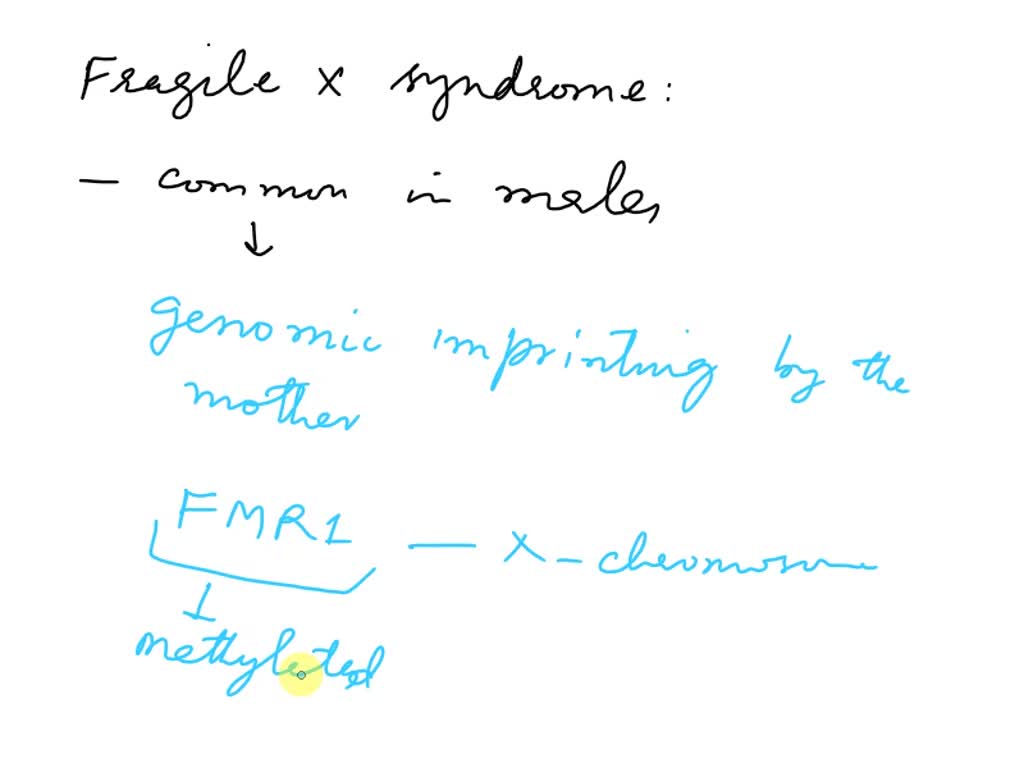 Fragile X syndrome:
- common in males
↓
genomic imprinting by the
mother
FMR1 - X-chromosome
↓
methylated